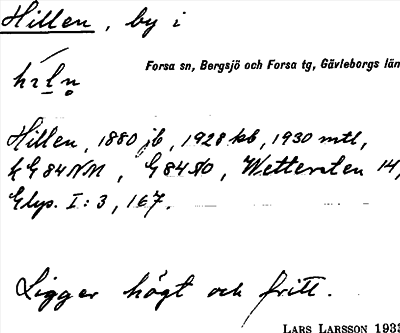 Hillen, by i
Forsa sn, Bergsjö och Forsa tg, Gävleborgs län
Hillen, 1880 jb, 1928 kb, 1930 mtl,
k G 84 NM, G 84 SO, Wettersten 14,
Glys. I: 3, 167.
Ligger högt och fritt.
LARS LARSSON 1933